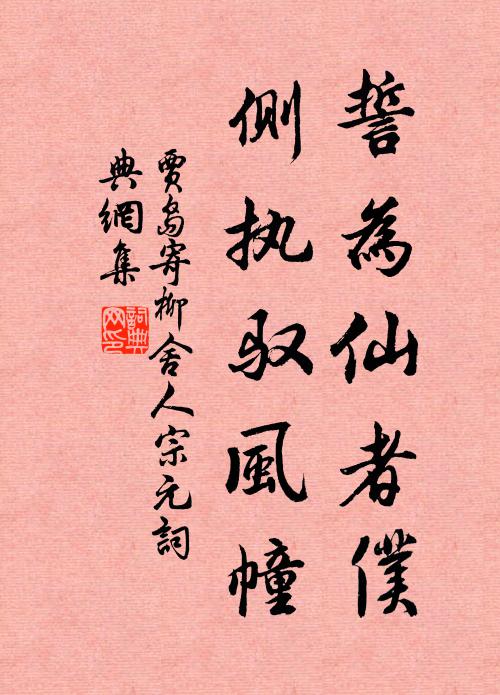 誓為仙者僕
側执驭風幢
賈島寄柳舍人宗元詞
典網集
詞典网印